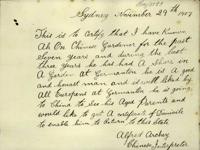 Sydney November 29th 1907
This is to Certify that I have Known
Ah On Chinese Gardener for the past
Seven Years and during the last
three Years he has had a Share in
A Garden at Germanton he is a good
and honest man and is well liked by
All Europeans at Germanton he is going
to China to See his Aged Parents and
would like to get A certificate of Domicile
to enable him to Return to this State
Alfred Archey
Chinese Interpreter